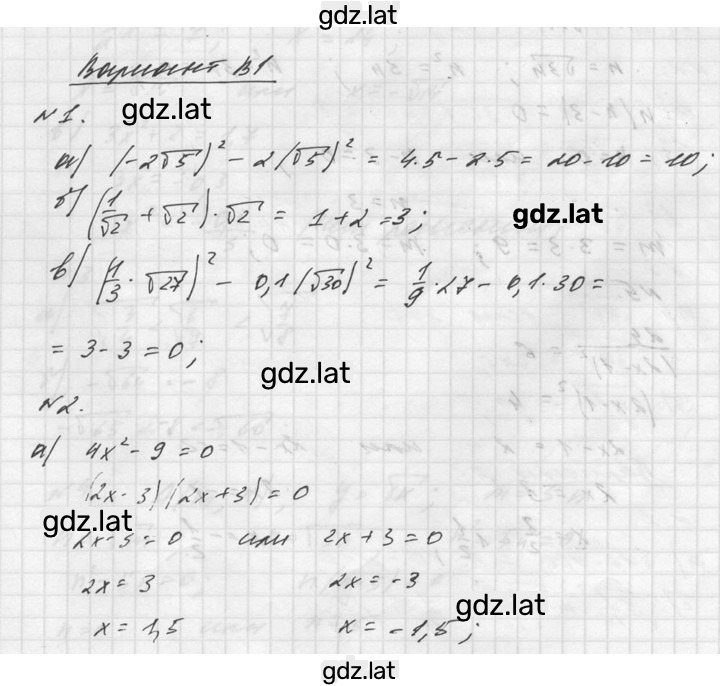 gdz.lat
Вариант В1
№1.
gdz.lat
а) (-2√5)² - 2(√5)² = 4·5 - 2·5 = 20 - 10 = 10;
б) (1/√2 + √2)·√2 = 1 + 2 = 3;
gdz.lat
в) (1/3·√27)² - 0,1(√30)² = 1/9·27 - 0,1·30 =
= 3 - 3 = 0;
gdz.lat
№2.
а) 4x² - 9 = 0
(2x - 3)(2x + 3) = 0
gdz.lat
2x - 3 = 0 или 2x + 3 = 0
2x = 3 2x = -3
gdz.lat
x = 1,5 x = -1,5;
gdz.lat